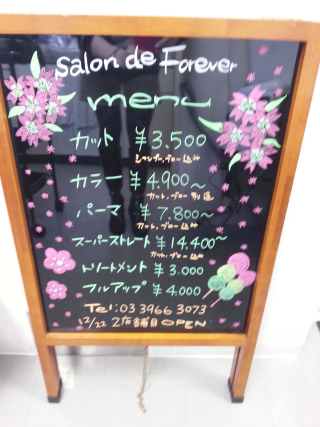 Salon de Forever
menu
カット ¥3.500
シャンプー.ブロー込み
カラー ¥4.900～
カット.ブロー別途
パーマ ¥7.800～
カット.ブロー込み
スーパーストレート ¥14.400～
カット.ブロー込み
トリートメント ¥3.000
フルアップ ¥4.000
Tel:03 3966 3073
12/22 2店舗目OPEN